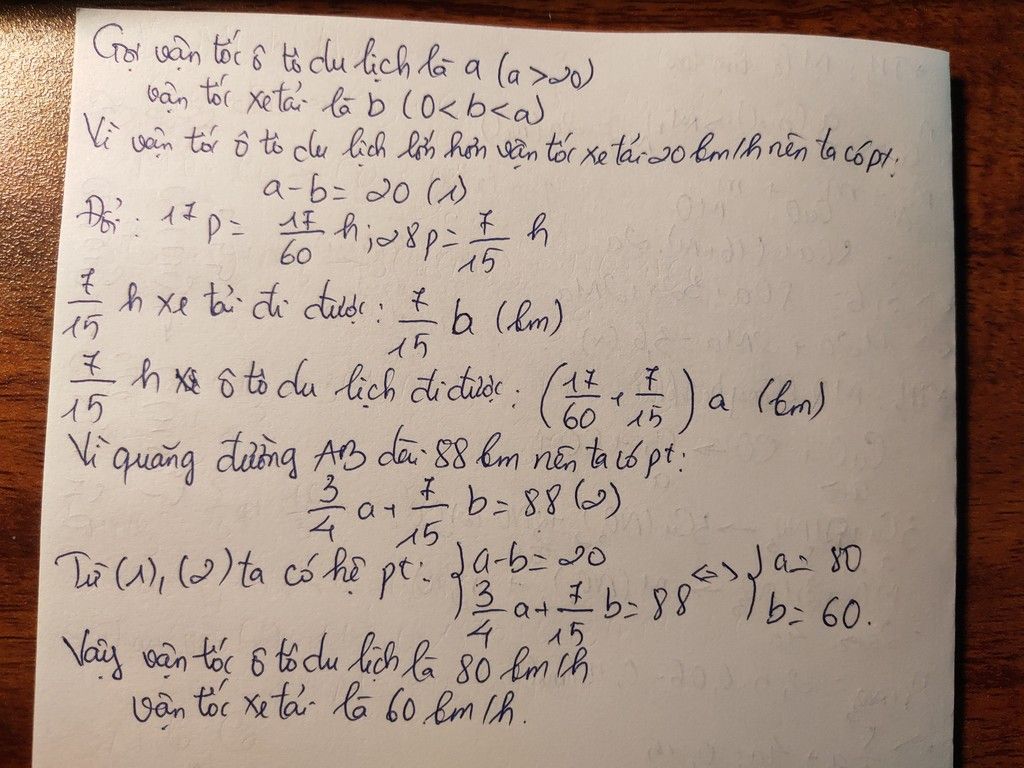 Gọi vận tốc ô tô du lịch là a (a > 20)
vận tốc xe tải là b (0 < b < a)
Vì vận tốc ô tô du lịch lớn hơn vận tốc xe tải 20 km/h nên ta có pt:
a - b = 20 (1)
Đổi: 17p = 17/60 h; 28p = 7/15 h
7/15 h xe tải đi được: 7/15 b (km)
7/15 h ô tô du lịch đi được: (17/60 + 7/15) a (km)
Vì quãng đường AB dài 88 km nên ta có pt:
3/4 a + 7/15 b = 88 (2)
Từ (1), (2) ta có hệ pt: { a - b = 20 <=> { a = 80
3/4 a + 7/15 b = 88 b = 60.
Vậy vận tốc ô tô du lịch là 80 km/h
vận tốc xe tải là 60 km/h.